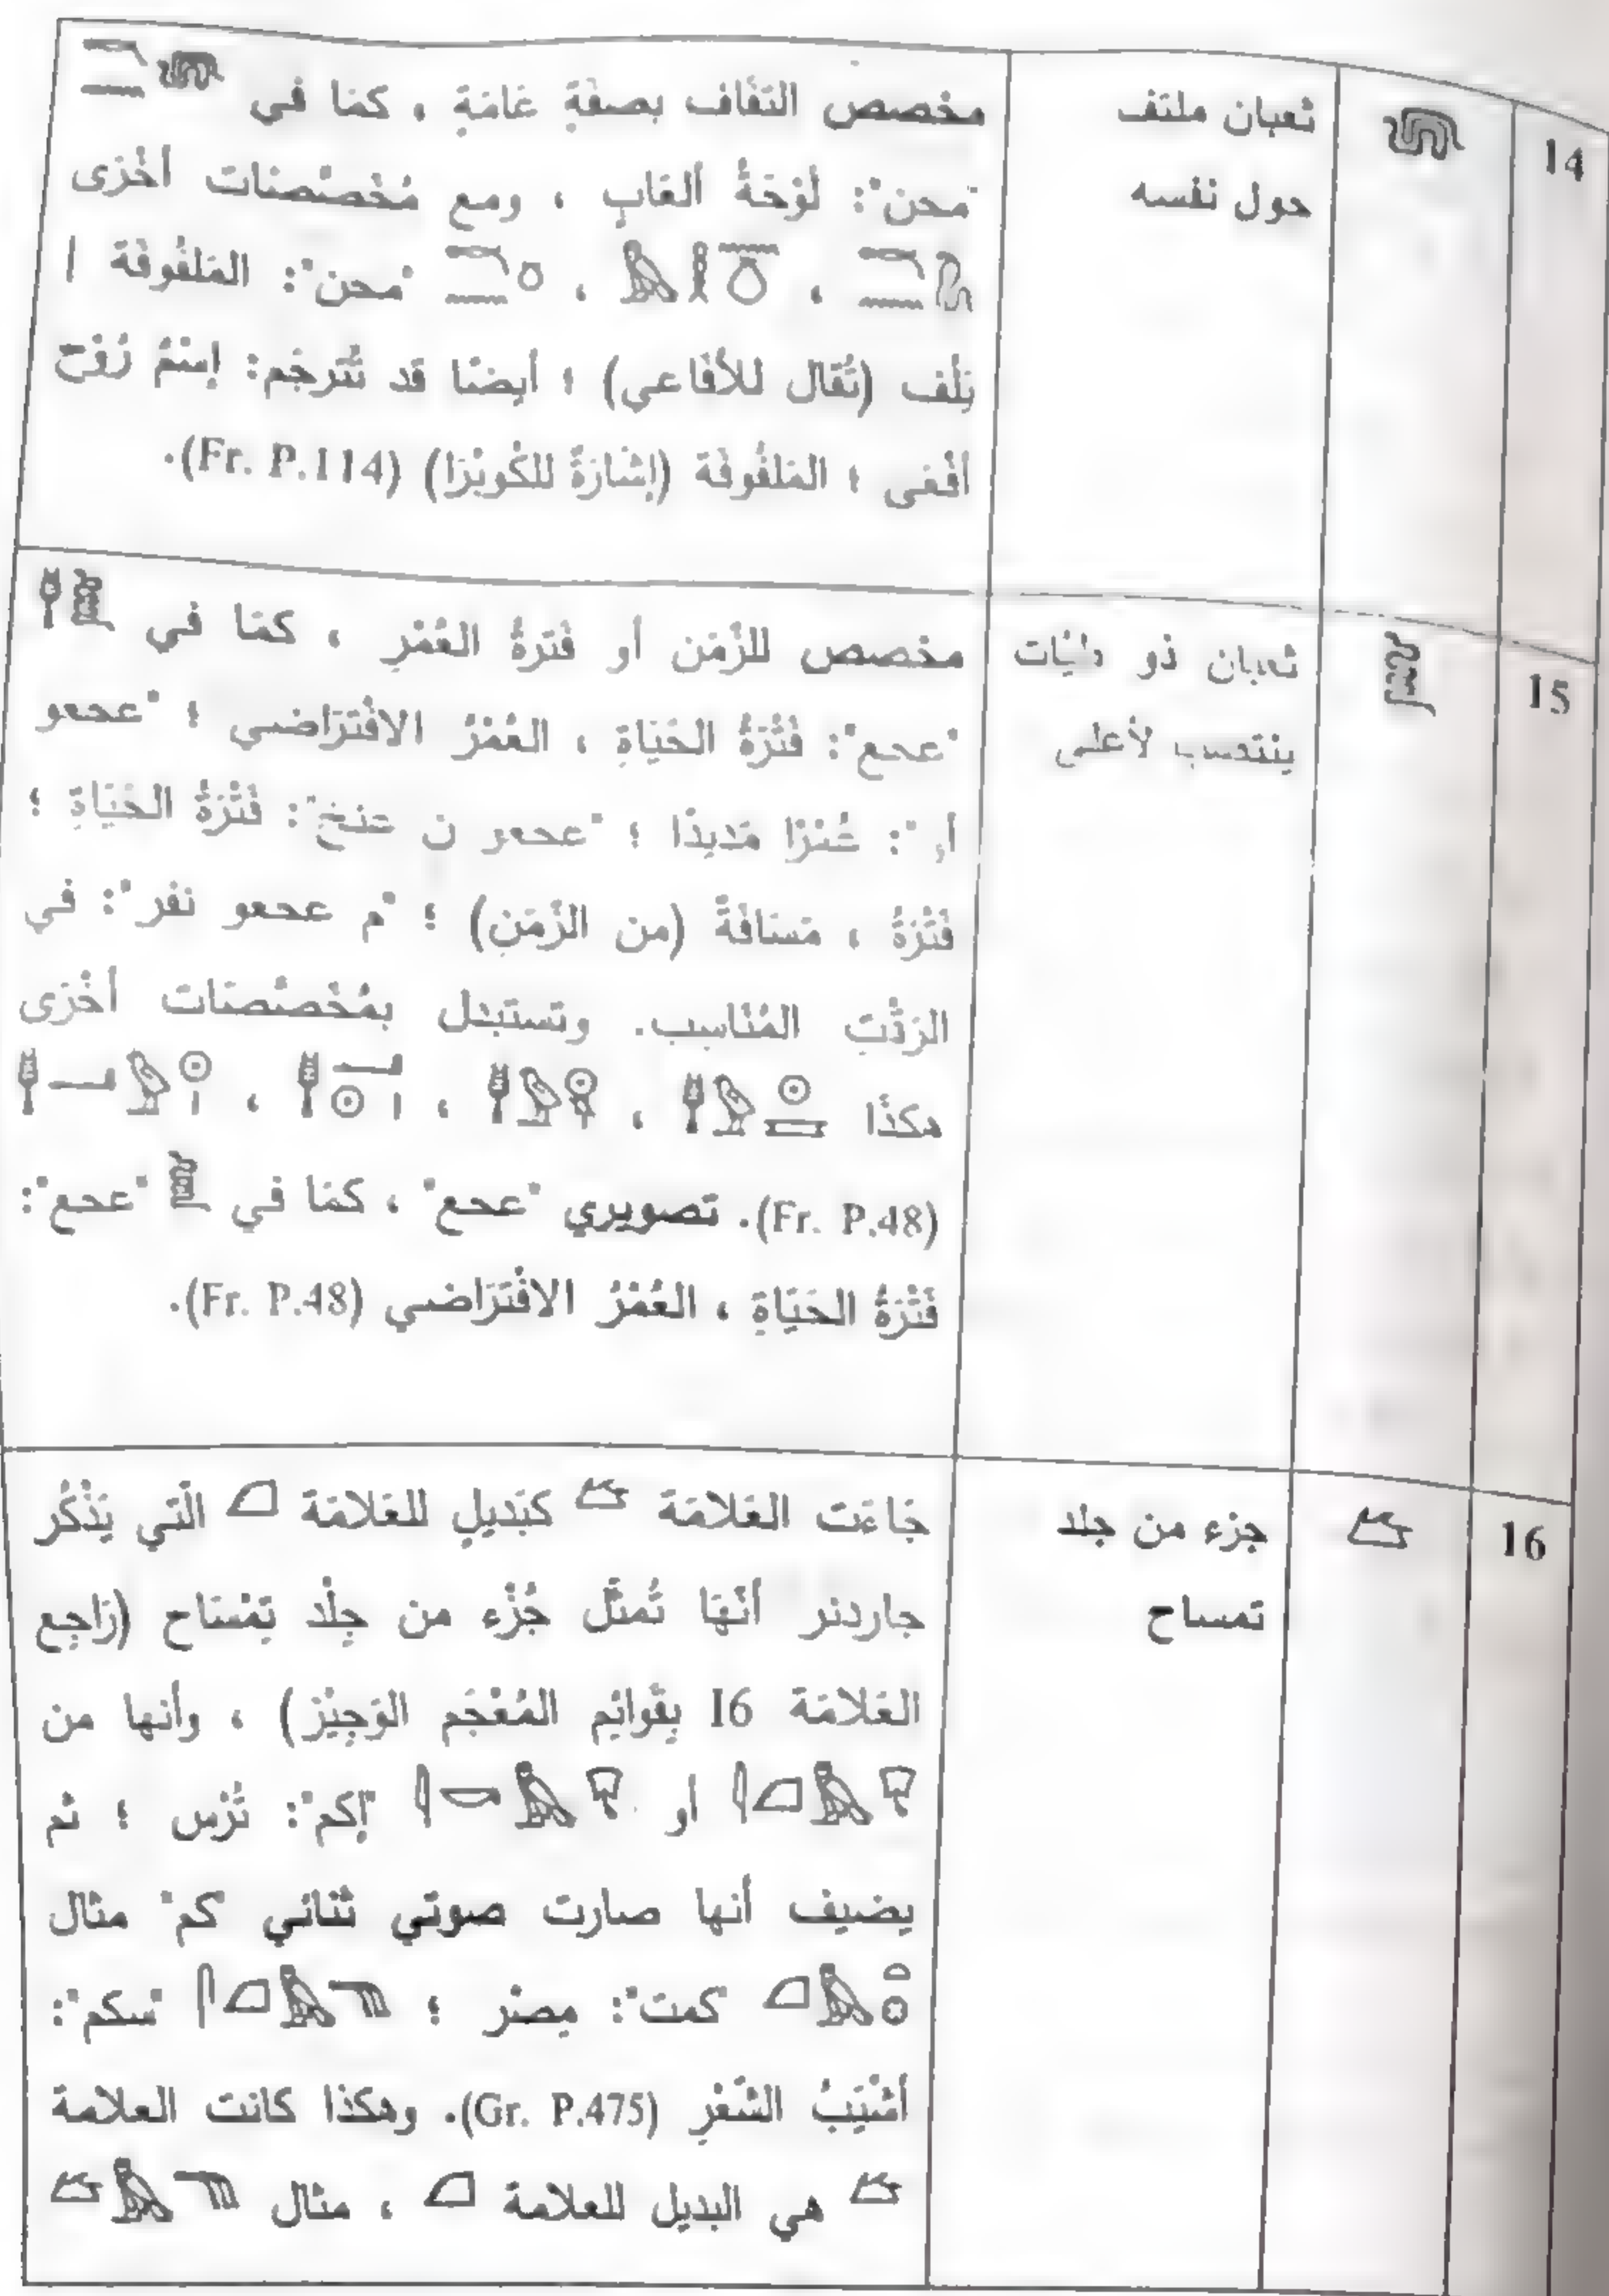 14
ثعبان ملتف
حول نفسه
مخصص التفاف بصفةٍ عَامَةٍ ، كمَا في
"محن": لَوْحَةُ ألعَابٍ ، ومع مُخْصصَنات أخْرَى
، ، "محن": المَلفُوفَة ا
يَلْف (تُقال للأفَاعي) ؛ أيضًا قد تُترجَم: إسْمُ رُوْحَ
أفْعَى ؛ المَلفُوفَة (إشَارَةً للكُوبْرَا) (Fr. P.114).
15
ثعبان ذو طيَّات
ينتصب لأعلى
مخصص للزَّمَن أو فَترةُ العُمْرِ ، كمَا في
"عحع": فَتْرَةُ الحَيَاةِ ، العُمْرُ الافْتَرَاضي ؛ "عحعو
": عُمْرًا مَديدًا ؛ "عحعو ن عنخ": فَتْرَةُ الحَيَاةِ ؛
فَتْرَةُ ، مَسَافَةً (من الزَّمَنِ) ؛ "م عحعو نفر": في
الوَقْتِ المُنَاسِب. وتستبدل بمُخْصصَنات أخْرَى
هكذَا ، ، ،
(Fr. P.48). تصويري "عحع" ، كمَا في "عحع":
فَتْرَةُ الحَيَاةِ ، العُمْرُ الافْتَرَاضي (Fr. P.48).
16
جزء من جلد
تمساح
جَاءَت العَلامَة كبَديلٍ للعَلامَة الَّتي يَذْكُر
جاردنر أنَّهَا تُمثَّل جُزْء من جِلْد تِمْسَاح (رَاجِع
العَلامَة I6 بِقَوائِم المُعْجَم الوَجِيْز) ، وأنها من
أو "إكم": تُرْس ؛ ثم
يضيف أنها صارت صوتي ثُنائي "كم" مثال
"كمت": مِصْر ؛ "سكم":
أشْيَبُ الشَّعْرِ (Gr. P.475). وهكذا كانت العلامة
هي البديل للعلامة ، مثال